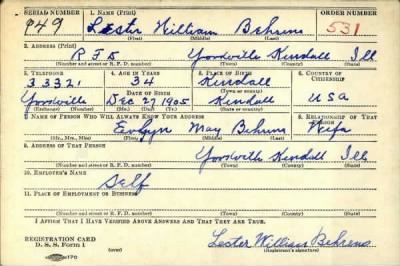 SERIAL NUMBER 1. NAME (Print) ORDER NUMBER
949 Lester William Behrens 531
(First) (Middle) (Last)
2. ADDRESS (Print)
RFD Yorkville Kendall Ill
(Number and street or R. F. D. number) (Town) (County) (State)
3. TELEPHONE 4. AGE IN YEARS 5. PLACE OF BIRTH 6. COUNTRY OF CITIZENSHIP
3332 34 Kendall
DATE OF BIRTH (Town or county)
Yorkville Dec 27 1905 Kendall USA
(Exchange) (Number) (Mo.) (Day) (Yr.) (State or country)
7. NAME OF PERSON WHO WILL ALWAYS KNOW YOUR ADDRESS 8. RELATIONSHIP OF THAT PERSON
Evelyn May Behrens Wife
(Mr., Mrs., Miss) (First) (Middle) (Last)
9. ADDRESS OF THAT PERSON
Yorkville Kendall Ill
(Number and street or R. F. D. number) (Town) (County) (State)
10. EMPLOYER'S NAME
Self
11. PLACE OF EMPLOYMENT OR BUSINESS
(Number and street or R. F. D. number) (Town) (County) (State)
I AFFIRM THAT I HAVE VERIFIED ABOVE ANSWERS AND THAT THEY ARE TRUE.
REGISTRATION CARD
D. S. S. Form 1 Lester William Behrens
(over) (Registrant's signature)